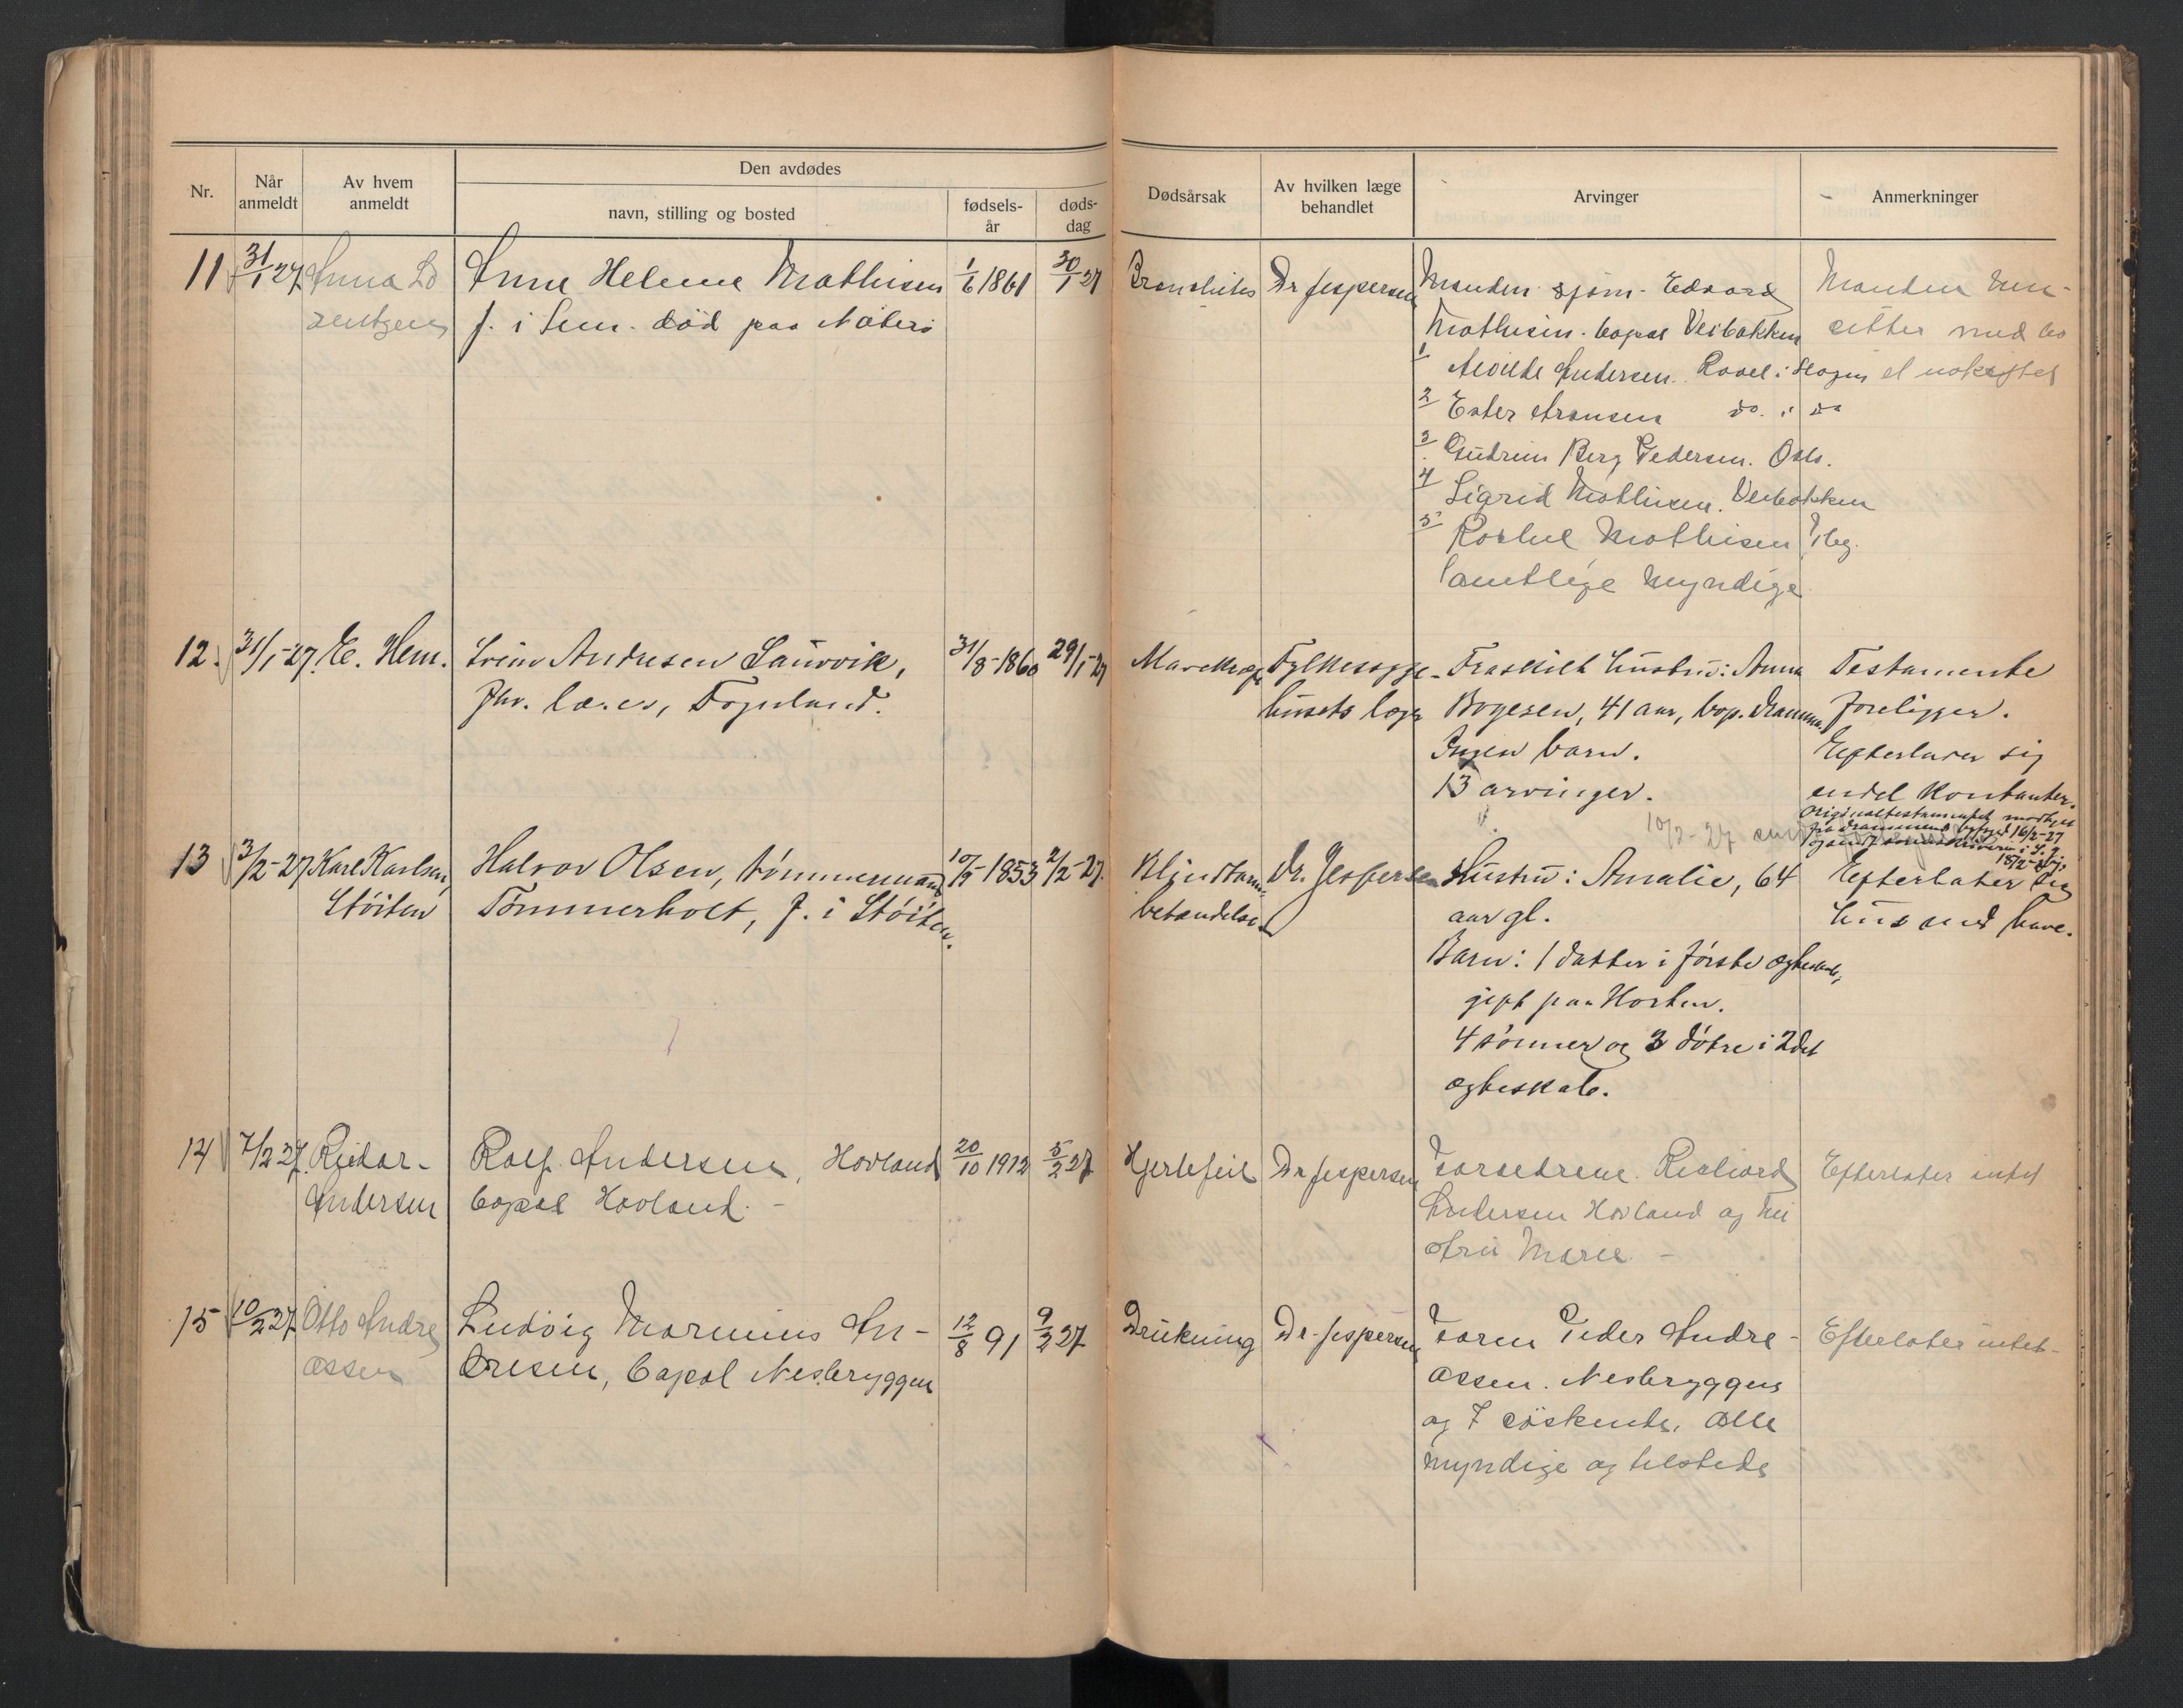 Nr.
Når anmeldt
Av hvem anmeldt
Den avdødes
navn, stilling og bosted
fødsels-år
døds-dag
Dødsårsak
Av hvilken læge behandlet
Arvinger
Anmerkninger
11 31/1 27 Anna Lo
rentzen
Anne Helene Mathisen 1/6 1861 30/1 27
f. i Sem. død paa Nøterø
Bronchites Dr Jespersen
Manden sjøm. Edvard
Mathisen. bopæl Veibakken
1 Alvilde Andersen. Ravel i Slagen
2 Ester Fransen do. i do
3 Gudrun Berg Pedersen. Oslo.
4 Sigrid Mathisen. Veibakken
5 Mathisen ibg.
samtlige myndige
Manden hen-
sitter med bo
et uskiftet
12. 31/1-27. E. Hem.
Svein Andresen Saurvik, 31/8-1860 29/1-27
fhv. lærer, Fognland.
Mavekræft Fylkessyge-
husets læger
Fraskilt hustru: Anna
Bogesen, 41 aar, bop. Drammen
Ingen barn.
13 arvinger.
Testamente
foreligger.
Efterlader sig
endel kontanter.
Originaltestamentet mottget
fra Drammens byfoged 16/2-27
18/2-27
10/2-27
13 3/2-27 Karl Karlsen,
Støiten
Halvor Olsen, tømmermand 10/9-1853 2/2-27.
Tømmerholt, f. i Støiten.
Blindtarm-
betændelse
Dr. Jespersen
Hustru: Amalie, 64
aar gl.
Barn: 1 datter i første egteskab,
gift paa Horten.
4 sønner og 3 døtre i 2det
egteskab.
Efterlater sig
hus med have.
14 7/2 27. Reidar
Andersen
Rolf Andersen, Hovland 20/10 1912 5/2 27
bopæl Hovland. -
Hjertefeil Dr Jespersen
Forældrene Richard
Andersen Hovland og hu
stru Marie -
Efterlater intet
15 10/2 27 Otto Andre
assen
Ludvig Marinius An-
dresen, bopæl Nesbryggen
12/8 91 9/2 27
Drukning Dr. Jespersen
Faren Peder Andre-
assen. Nesbryggen
og 7 søskende, alle
myndige og tilstede
Efterlater intet-